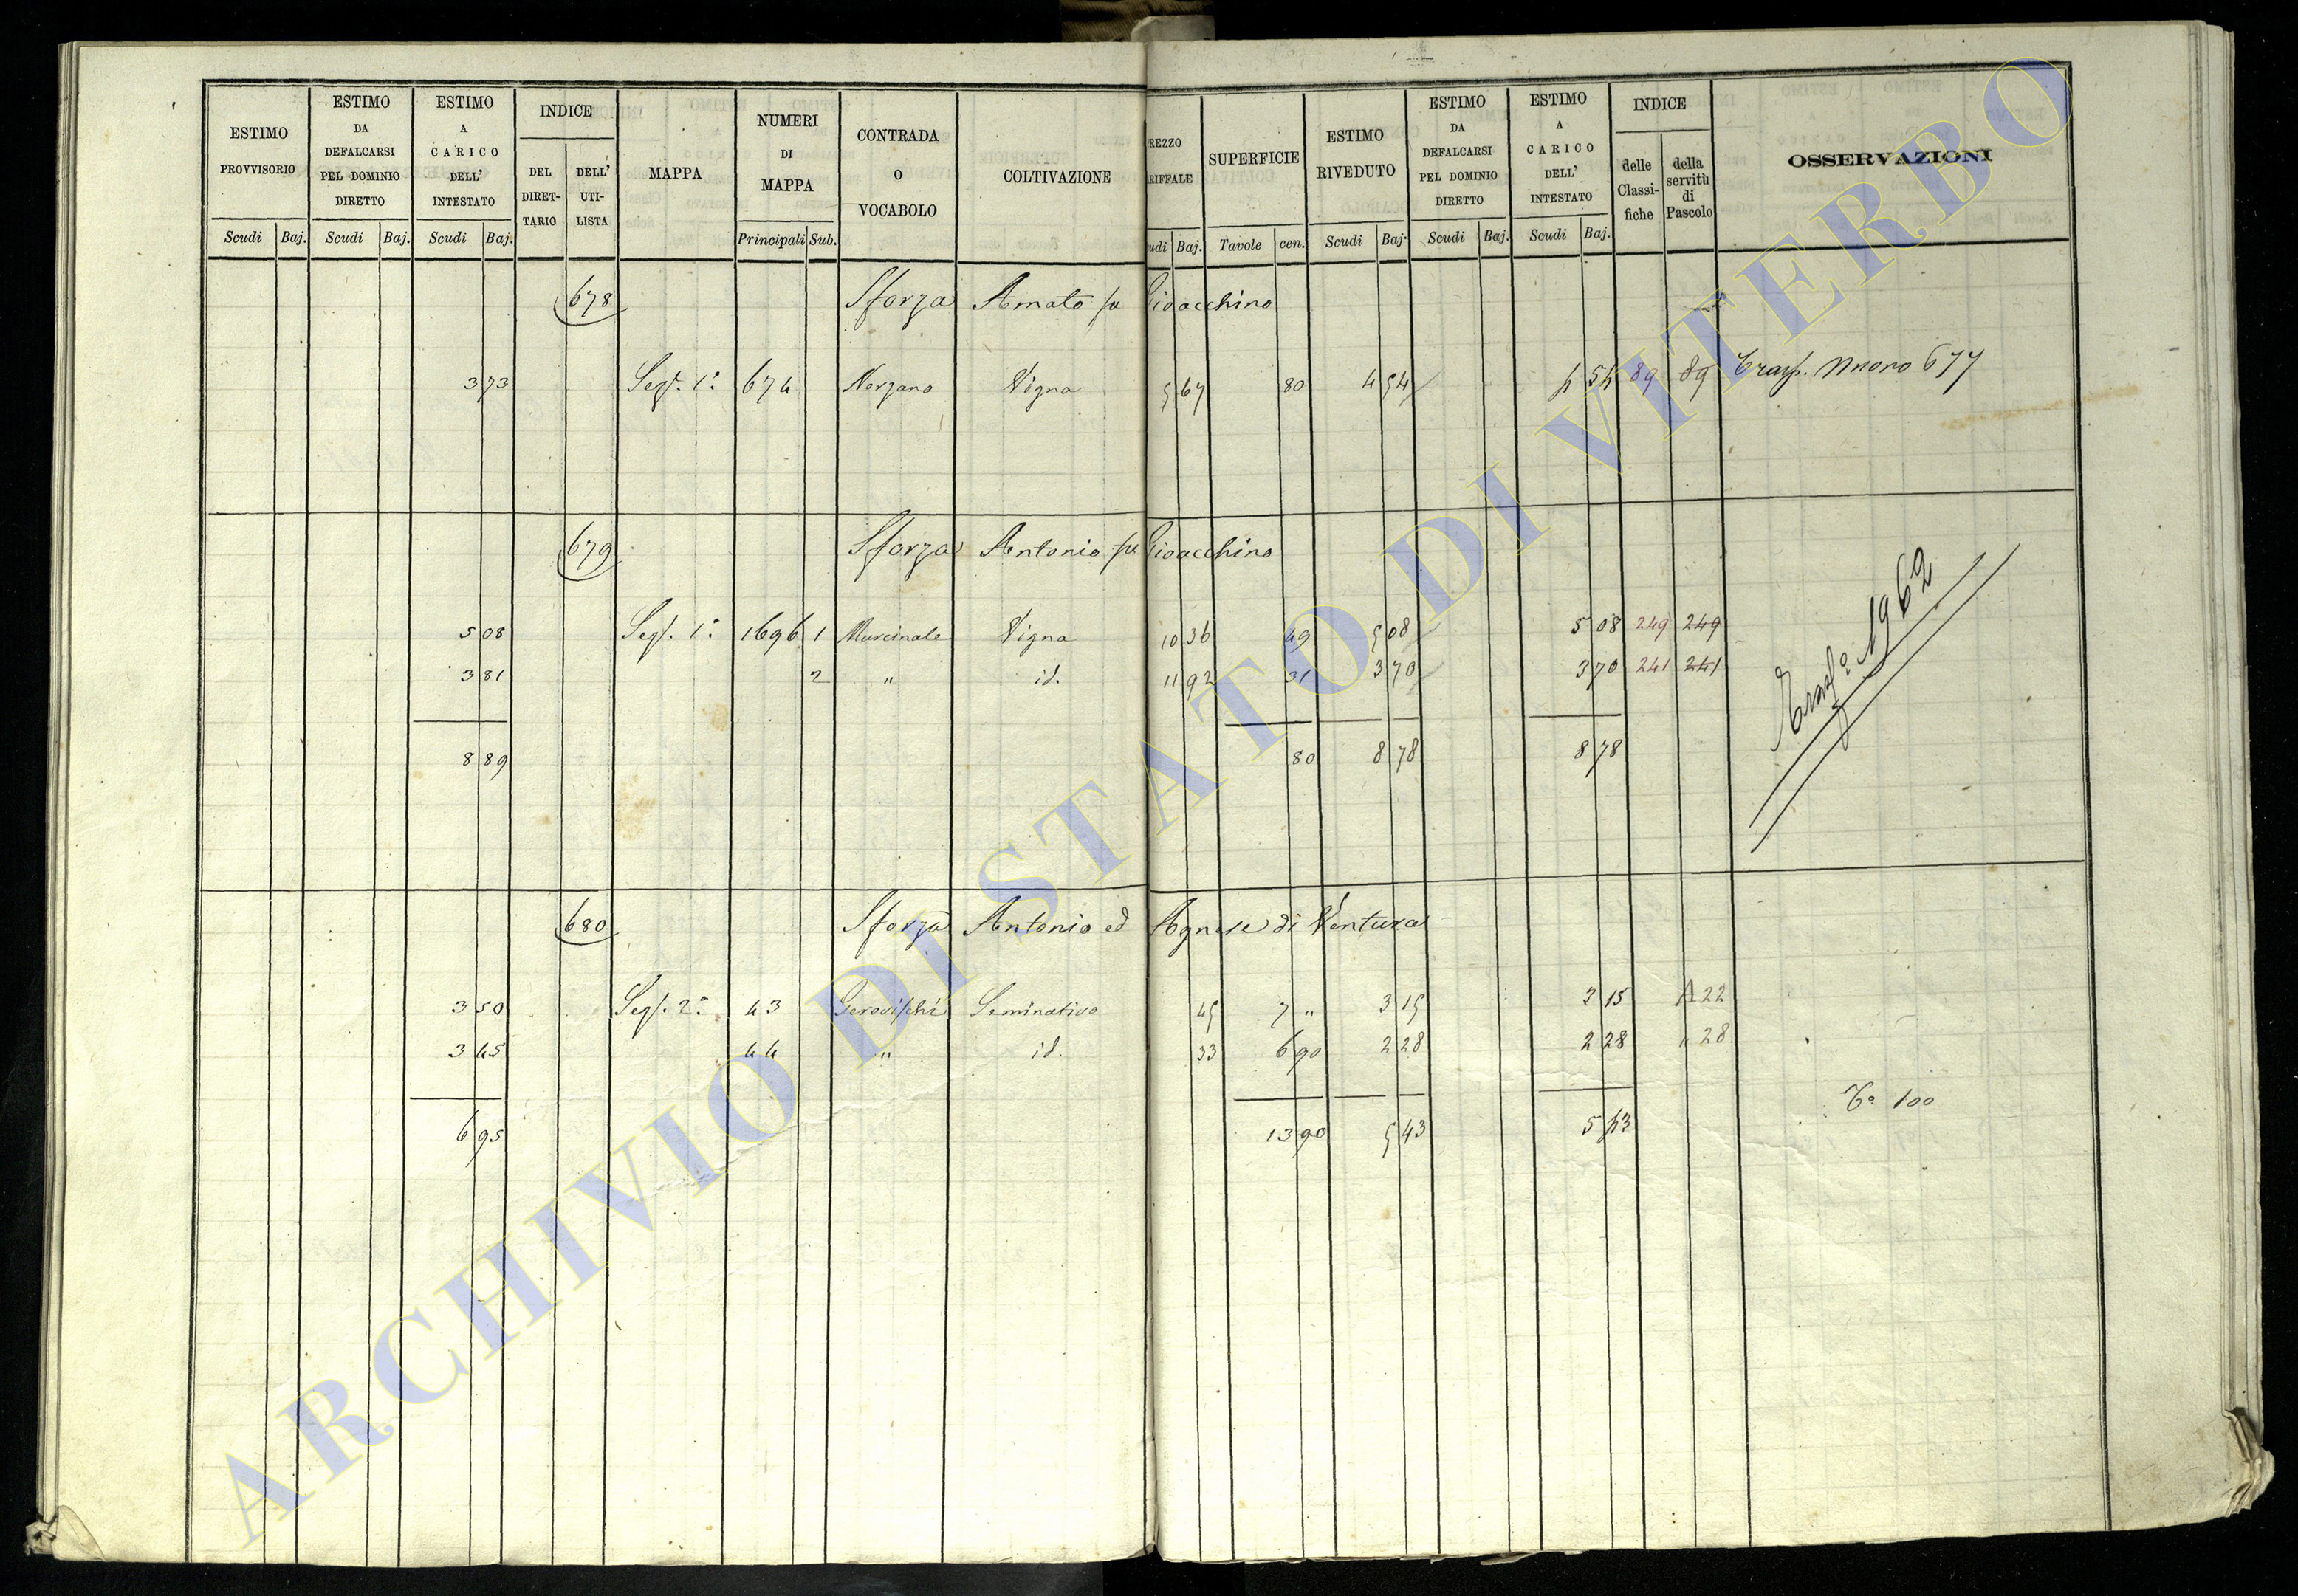 ESTIMO PROVVISORIO | ESTIMO DA DEFALCARSI PEL DOMINIO DIRETTO | ESTIMO A CARICO DELL' INTESTATO | INDICE | MAPPA | NUMERI DI MAPPA | CONTRADA O VOCABOLO | COLTIVAZIONE | REZZO RIFFALE | SUPERFICIE | ESTIMO RIVEDUTO | ESTIMO DA DEFALCARSI PEL DOMINIO DIRETTO | ESTIMO A CARICO DELL' INTESTATO | INDICE | OSSERVAZIONI
DEL DIRET-TARIO | DELL' UTI-LISTA | delle Classi-fiche | della servitù di Pascolo
Scudi | Baj. | Scudi | Baj. | Scudi | Baj. | Principali | Sub. | udi | Baj. | Tavole | cen. | Scudi | Baj. | Scudi | Baj. | Scudi | Baj.
678 Sforza Amato fu Gioacchino
3 73 Sezˢ. 1ª 674 Nerzano Vigna 5 67 80 4 54 4 54 89 89 Trasf. Nuovo 677
679 Sforza Antonio fu Gioacchino
5 08 Sezˢ. 1ª 1696 1 Murcinale Vigna 10 36 49 5 08 5 08 249 249
3 81 2 " id. 11 92 31 3 70 3 70 241 241
Trasfº 1962
8 89 80 8 78 8 78
680 Sforza Antonio ed Agnese di Ventura
3 50 Sezˢ. 2ª 43 Seminativo 45 7 " 3 15 3 15 22
3 45 44 " id. 33 6 90 2 28 2 28 " 28
Tº 100
6 95 13 90 5 43 5 43
ARCHIVIO DI STATO DI VITERBO